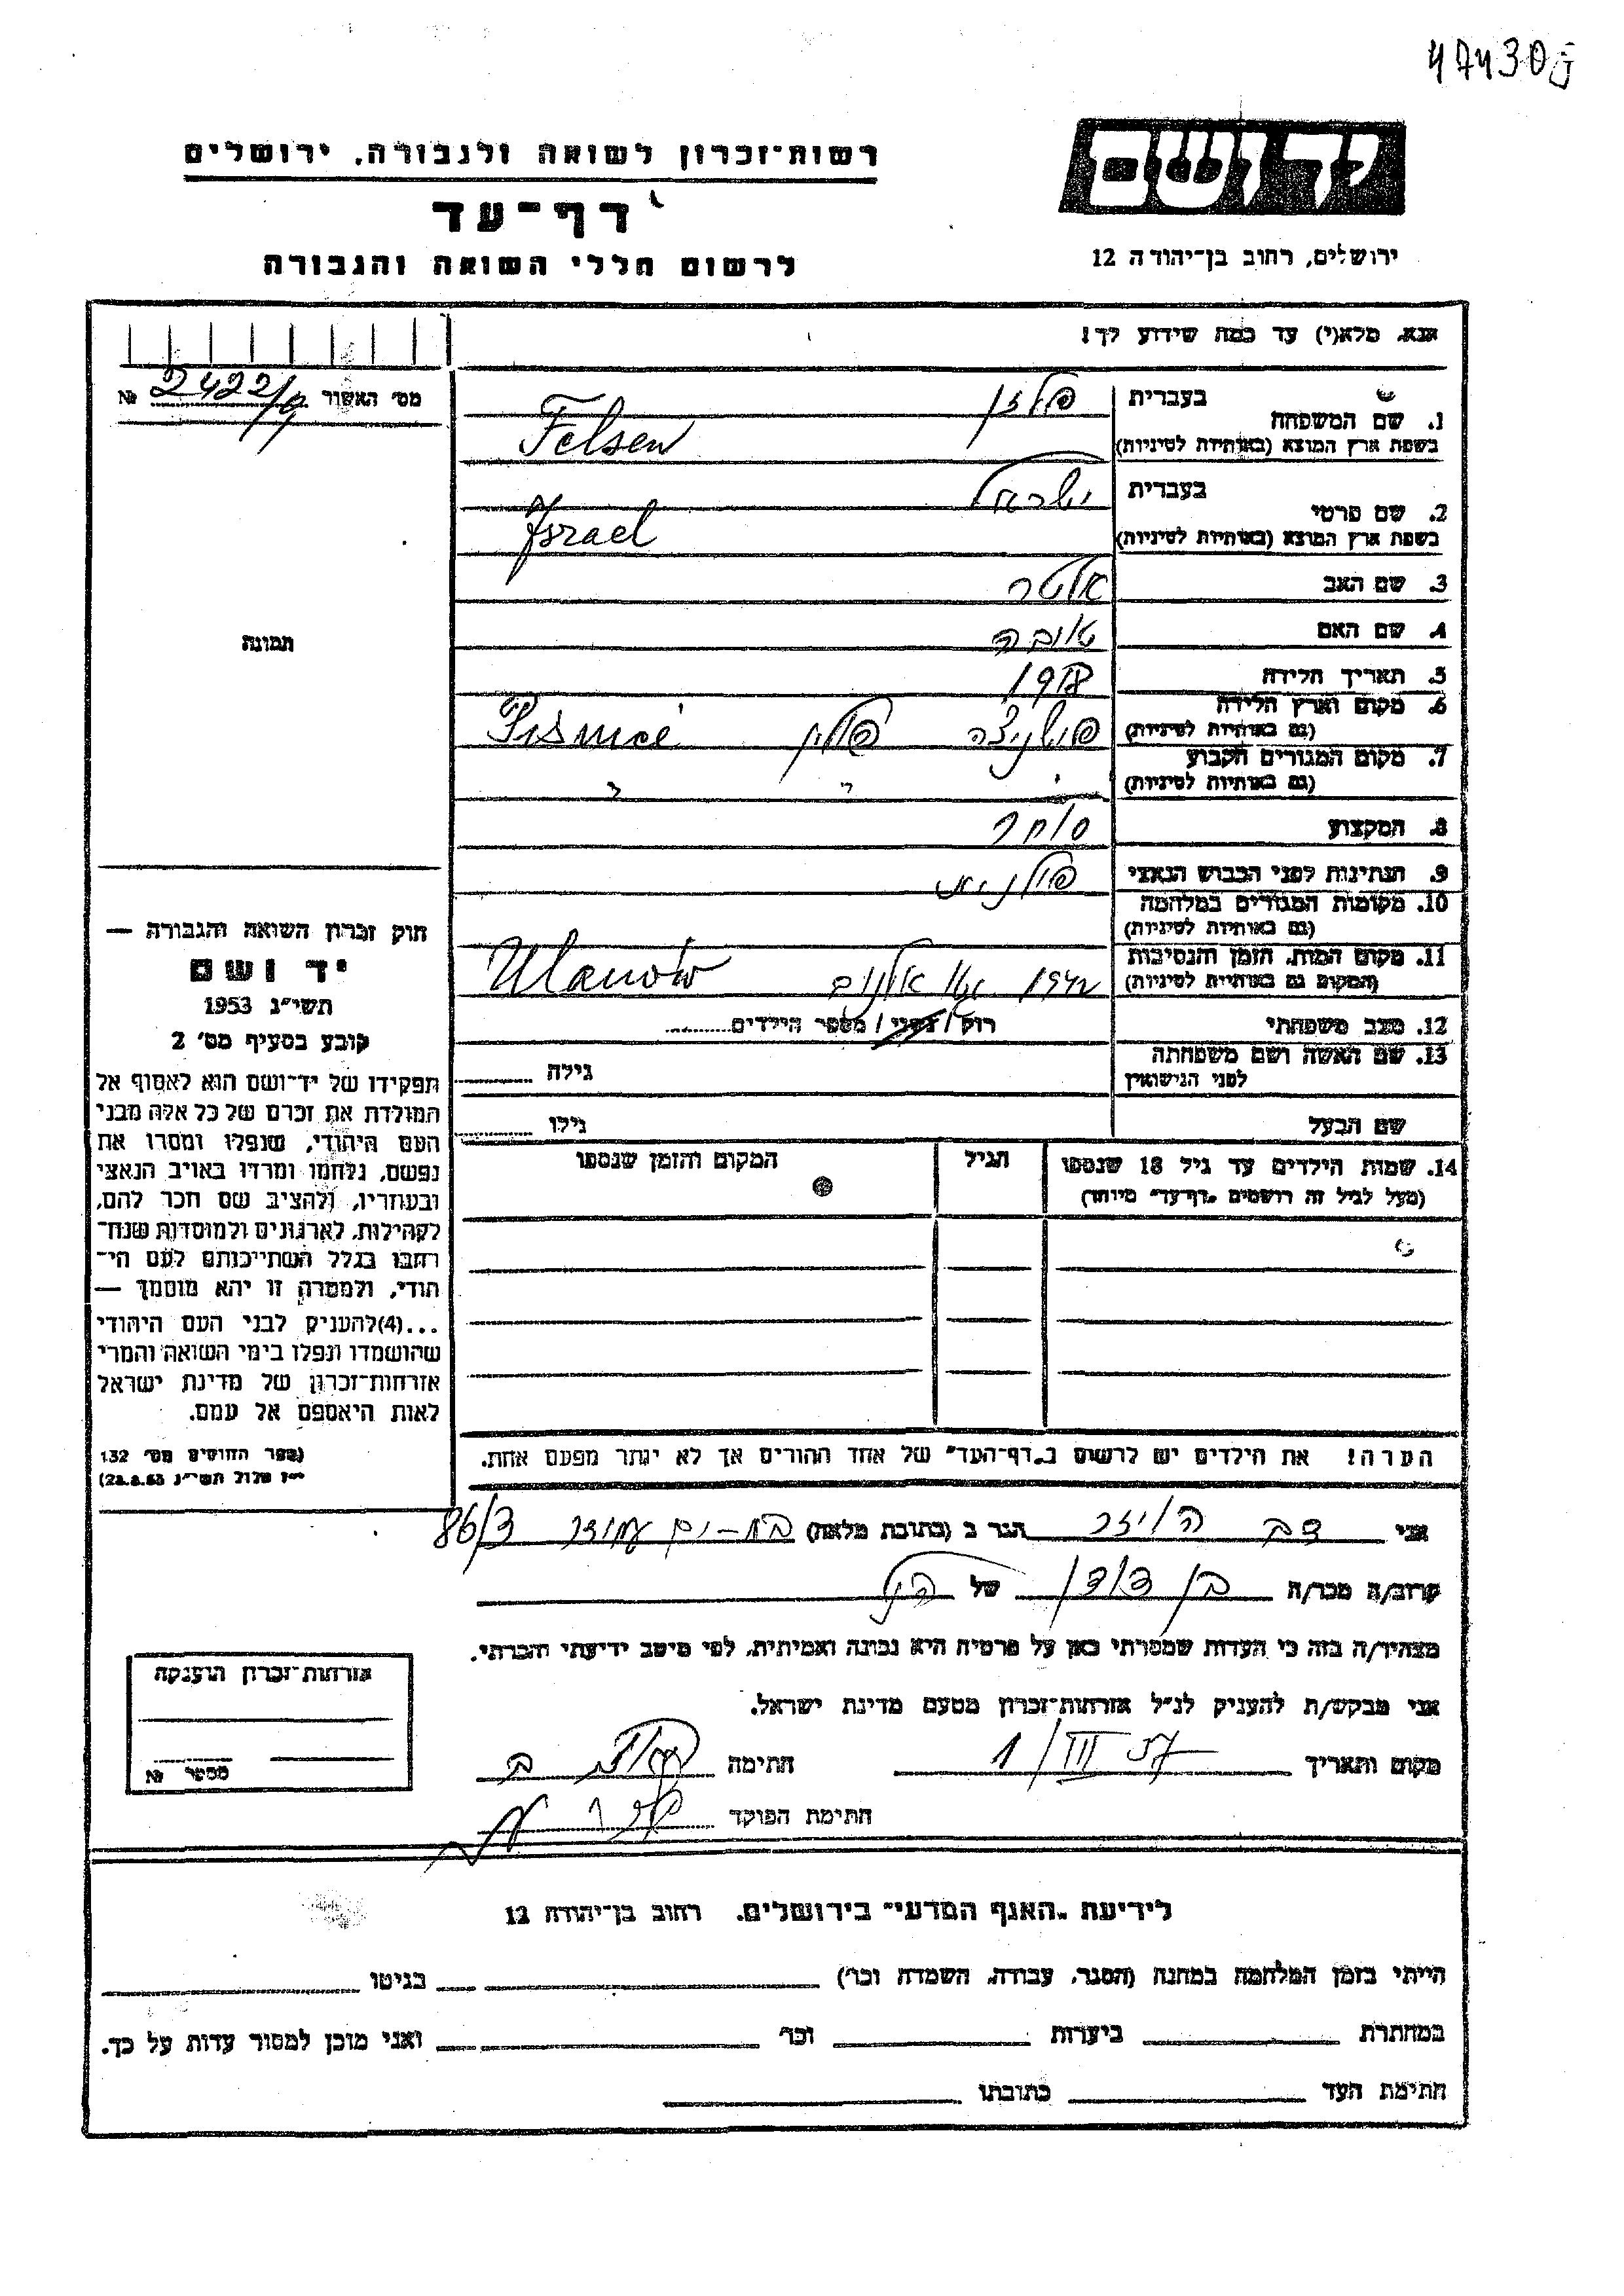 47430
רשות־זכרון לשואה ולגבורה, ירושלים
יד ושם
דף־עד
לרשום חללי השואה והגבורה
ירושלים, רחוב בן־יהודה 12
אנא, מלא(י) עד כמה שידוע לך!
מס' האשור 2422/ №
1. שם המשפחה בעברית פלזן
בשפת ארץ המוצא (באותיות לטיניות) Felsen
2. שם פרטי בעברית ישראל
בשפת ארץ המוצא (באותיות לטיניות) Israel
3. שם האב אלטר
4. שם האם טובה
5. תאריך הלידה 1918
6. מקום וארץ הלידה
(גם באותיות לטיניות) פולין
7. מקום המגורים הקבוע
(גם באותיות לטיניות) " " "
8. המקצוע סוחר
9. הנתינות לפני הכבוש הנאצי פולנית
10. מקומות המגורים במלחמה
(גם באותיות לטיניות)
11. מקום המות, הזמן והנסיבות
(המקום גם באותיות לטיניות) 1942 Ulanów
12. מצב משפחתי רוק / נשוי / מספר הילדים
13. שם האשה ושם משפחתה
לפני הנישואין גילה
שם הבעל גילו
14. שמות הילדים עד גיל 18 שנספו הגיל המקום והזמן שנספו
(מעל לגיל זה רושמים "דף־עד" מיוחד)
הערה! את הילדים יש לרשום ב"דף־העד" של אחד ההורים אך לא יותר מפעם אחת.
תמונה
חוק זכרון השואה והגבורה —
יד ושם
תשי"ג 1953
קובע בסעיף מס' 2
תפקידו של יד־ושם הוא לאסוף אל
המולדת את זכרם של כל אלה מבני
העם היהודי, שנפלו ומסרו את
נפשם, נלחמו ומרדו באויב הנאצי
ובעוזריו, ולהציב שם וזכר להם,
לקהילות, לארגונים ולמוסדות שנח־
רבו בגלל השתייכותם לעם הי־
הודי, ולמטרה זו יהא מוסמך —
...(4)להעניק לבני העם היהודי
שהושמדו ונפלו בימי השואה והמרי
אזרחות־זכרון של מדינת ישראל
לאות היאספם אל עמם.
(ספר החוקים מס' 132
י"ז אלול תשי"ג 28.8.53)
אני דב הגר ב (כתובת מלאה) בת-ים 86/3
קרוב/ה מכר/ה בן דודו של הנ"ל
מצהיר/ה בזה כי העדות שמסרתי כאן על פרטיה היא נכונה ואמיתית, לפי מיטב ידיעתי והכרתי.
אני מבקש/ת להעניק לנ"ל אזרחות־זכרון מטעם מדינת ישראל.
מקום ותאריך 1/III חתימה
חתימת הפוקד
אזרחות־זכרון הוענקה
מספר №
לידיעת "האגף המדעי" בירושלים, רחוב בן־יהודה 12
הייתי בזמן המלחמה במחנה (הסגר, עבודה, השמדה וכו') בגיטו
במחתרת ביערות וכו' ואני מוכן למסור עדות על כך.
חתימת העד כתובתו